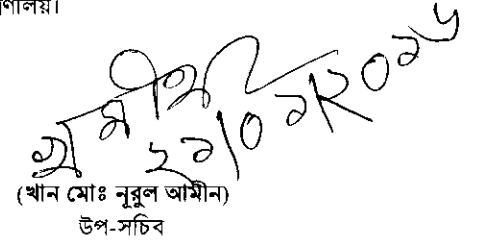 ণালয়।
২১/০১/২০১৬
(খান মোঃ নূরুল আমীন)
উপ-সচিব